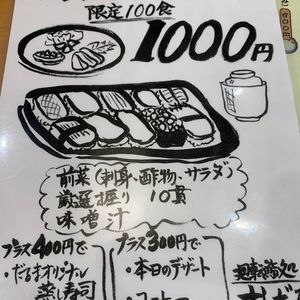 限定100食
1000円
前菜(刺身、酢物、サラダ)
厳選握り 10貫
味噌汁
プラス400円で
・だるまオリジナル
蒸し寿司
プラス300円で
・本日のデザート
・コーヒー